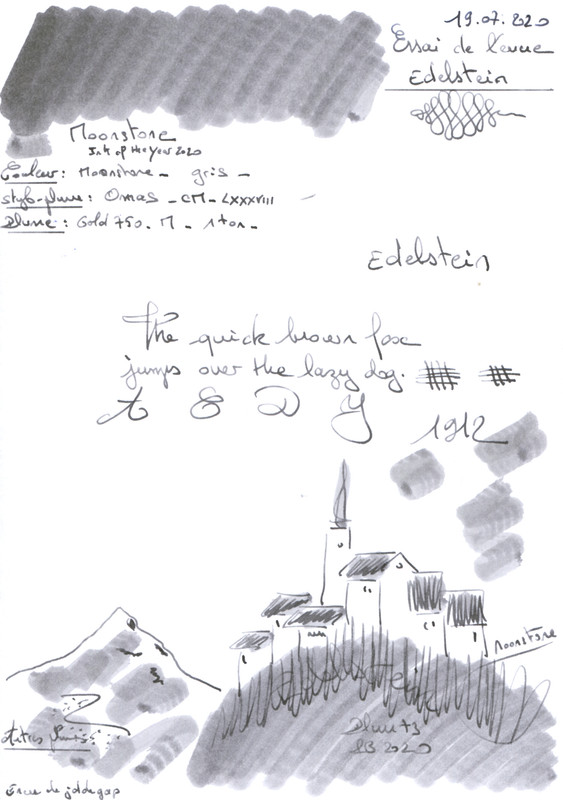 19.07.2020
Essai de l'encre
Edelstein
Moonstone
Ink of the Year 2020
Couleur : Moonstone - gris -
stylo-plume : Omas - CM - LXXXVIII
Plume : Gold 750. M -
Edelstein
The quick brown fox
jumps over the lazy dog.
A E D Y
1912
Moonstone
Edelstein
2020
Encre de